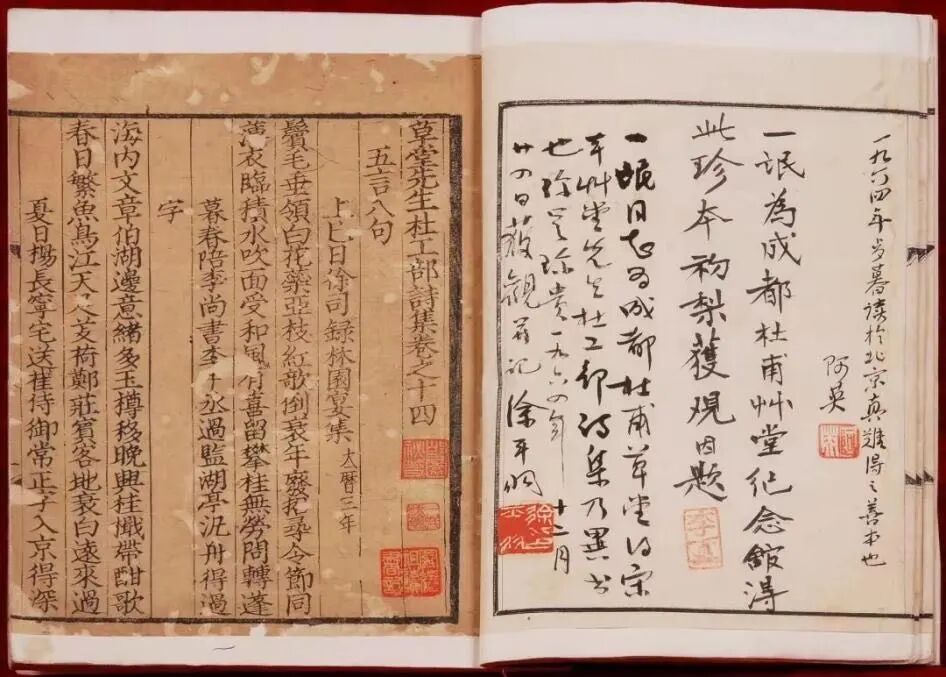 一九六四年岁暮读於北京真難得之善本也
阿英
一氓為成都杜甫艸堂纪念館得
此珍本初梨獲观因题
一氓同志为成都杜甫草堂得宋
本艸堂先生杜工部诗集乃異书
也珍之珍贵一九六四年十二月
廿四日获觀并记 徐平羽
草堂先生杜工部詩集卷之十四
五言八句
上巳日徐司録林園宴集 大曆三年
鬢毛垂領白花藥亞枝紅歌倒衰年廢招尋令節同
薄衣臨積水吹面受和風有喜留攀桂無勞問轉蓬
暮春陪李尚書李中丞過監湖亭汎舟得過
字
海内文章伯湖邊意緒多玉樽移晚興桂檝帶酣歌
春日繁魚鳥江天足芰荷鄭莊賓客地衰白遠來過
夏日楊長寧宅送崔侍御常正字入京得深